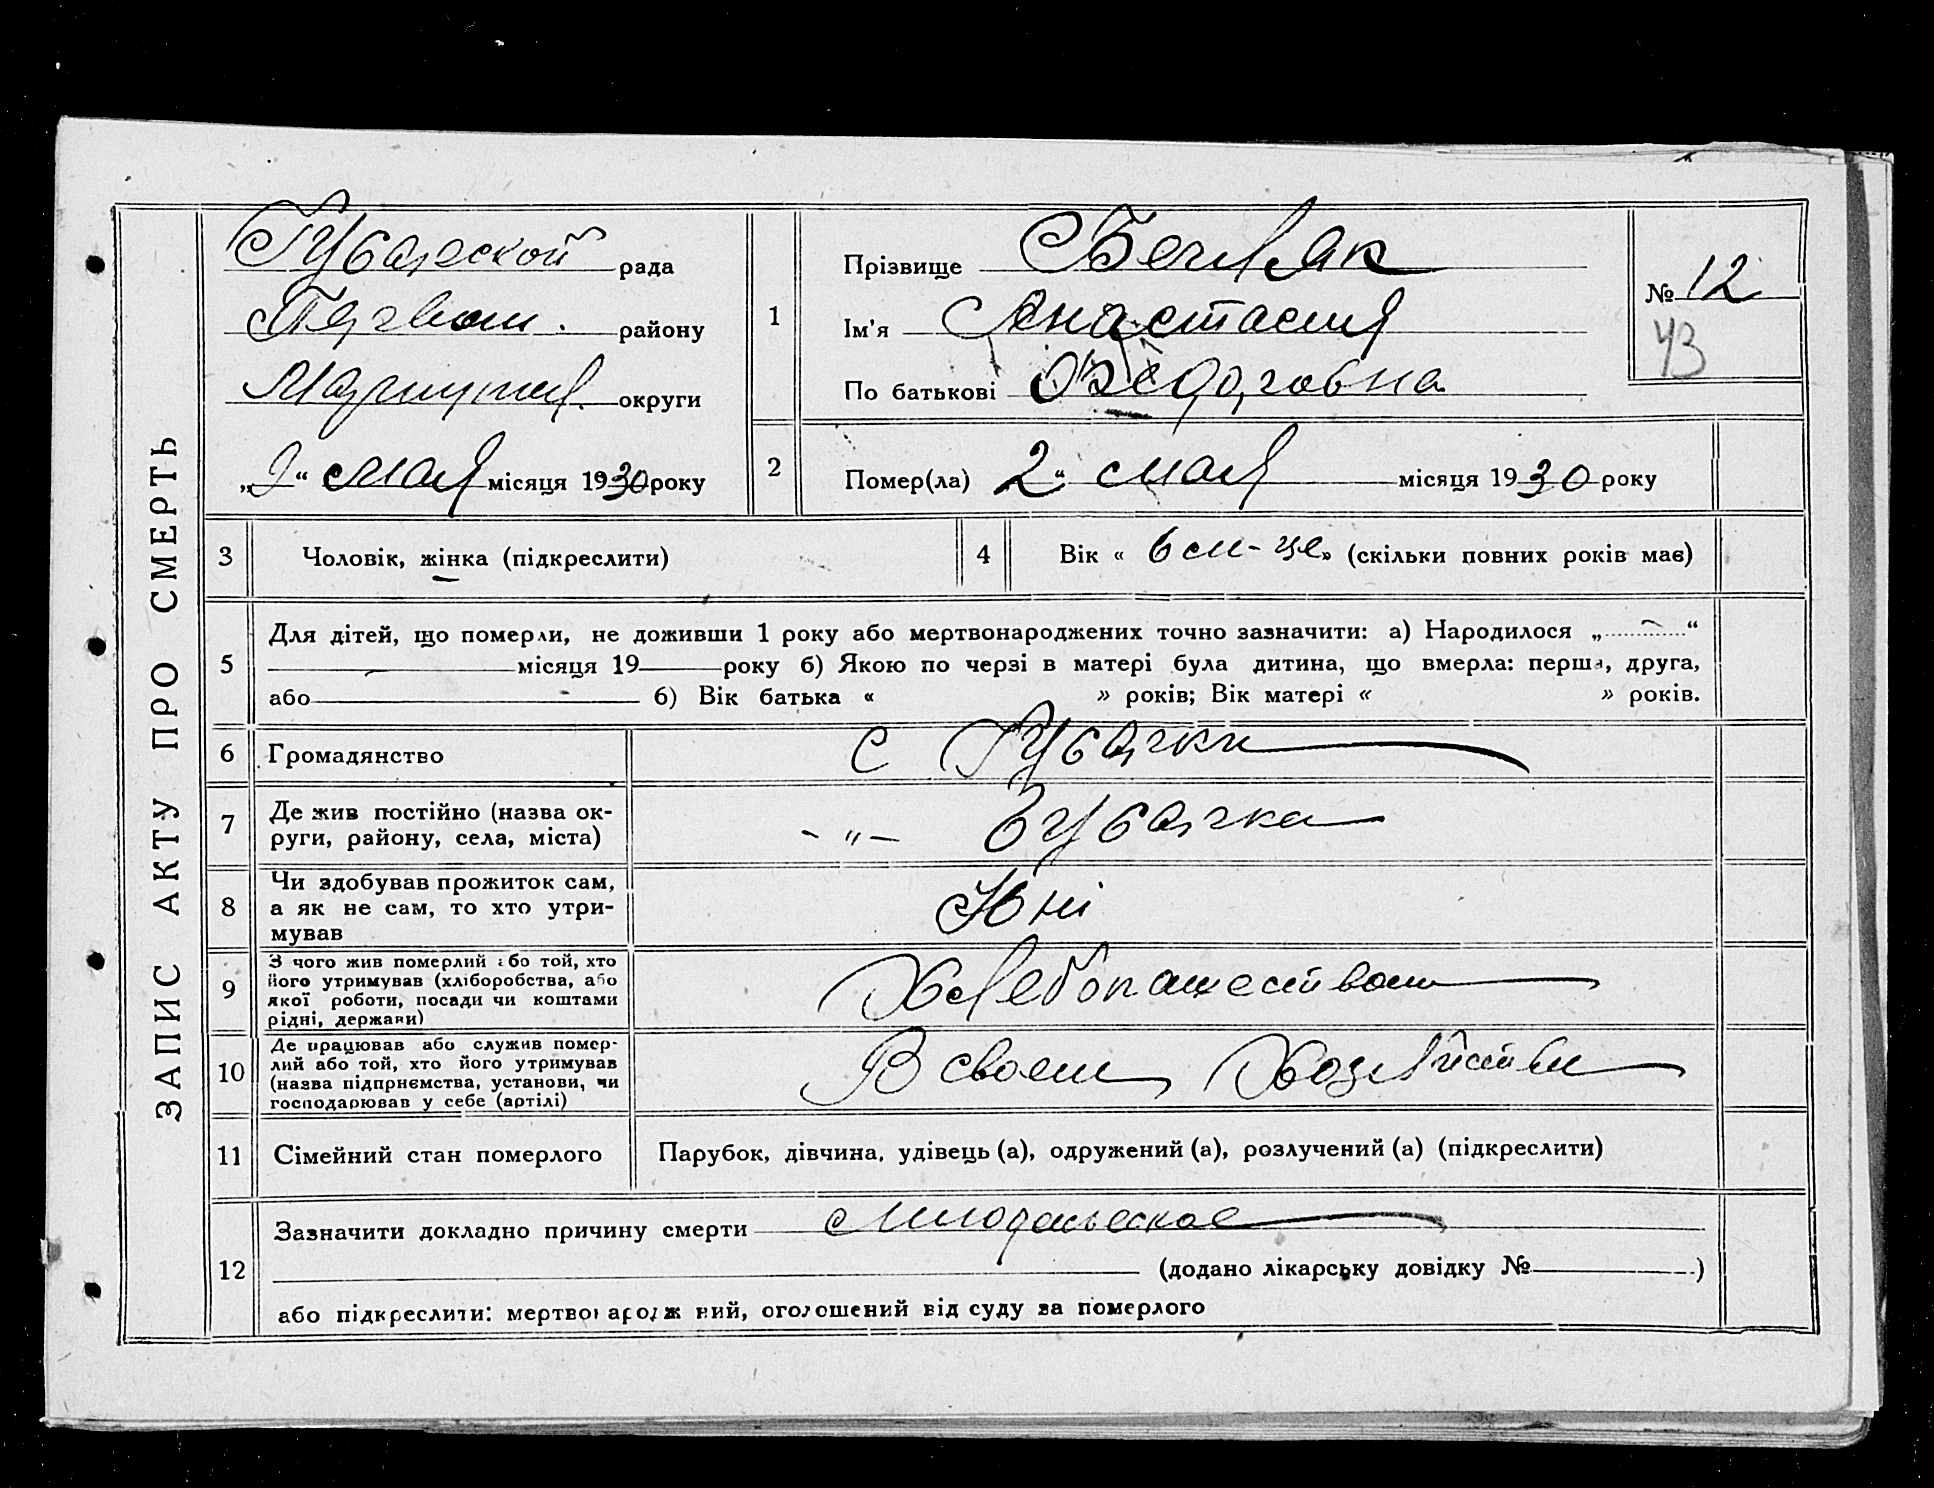 ЗАПИС АКТУ ПРО СМЕРТЬ
рада
району
округи
„ “ мая місяця 1930 року
1
Прізвище
Ім'я Анастасия
По батькові
№ 12
43
2
Помер(ла) 2 “ мая місяця 1930 року
3
Чоловік, жінка (підкреслити)
4
Вік « 6 м-це» (скільки повних років має)
5
Для дітей, що померли, не доживши 1 року або мертвонароджених точно зазначити: а) Народилося „ “
місяця 19 року б) Якою по черзі в матері була дитина, що вмерла: перша, друга,
або б) Вік батька « » років; Вік матері « » років.
6
Громадянство
с
7
Де жив постійно (назва ок-
руги, району, села, міста)
-"-
8
Чи здобував прожиток сам,
а як не сам, то хто утри-
мував
9
З чого жив померлий або той, хто
його утримував (хліборобства, або
якої роботи, посади чи коштами
рідні, держави)
Хлебопашеством
10
Де працював або служив помер-
лий або той, хто його утримував
(назва підприємства, установи, чи
господарював у себе (артілі)
В своем Хозяйстве
11
Сімейний стан померлого
Парубок, дівчина, удівець (а), одружений (а), розлучений (а) (підкреслити)
12
Зазначити докладно причину смерти
(додано лікарську довідку № )
або підкреслити: мертвонароджений, оголошений від суду за померлого